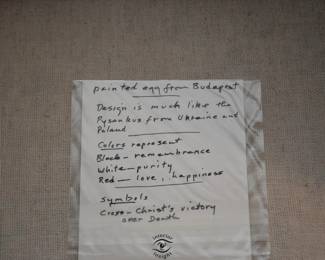 painted egg from Budapest
Design is much like the
Pysankus from Ukraine and
Poland
Colors represent
Black - remembrance
White - purity
Red - love, happiness
Symbols
Cross - Christ's victory
over Death
interior
insight